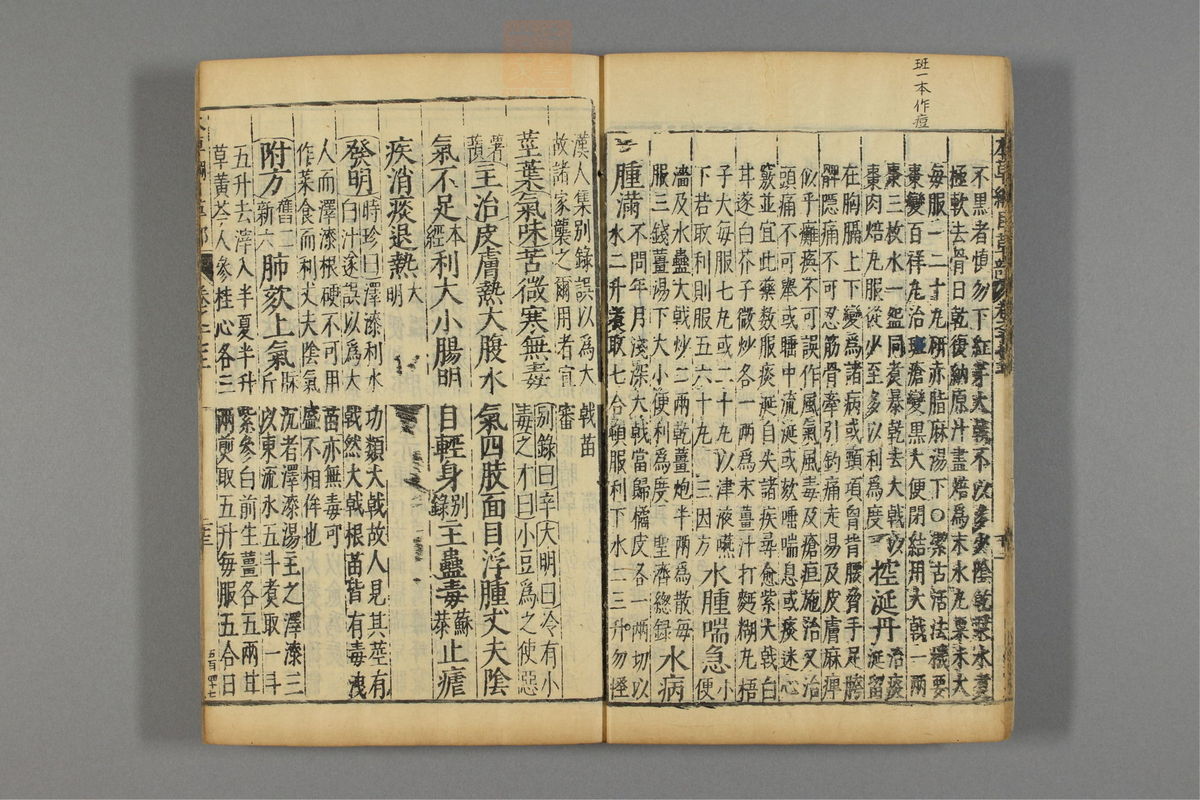 班一本作痘
本草綱目草部
不黑者慎勿下紅芽大戟不以多少陰乾漿水煮
極軟去骨日乾復納原汁盡焙為末水丸粟米大
每服一二十丸研赤脂麻湯下○潔古活法機要
棗變百祥丸治斑瘡變黑大便閉結用大戟一兩
棗三枚水一盌同煮暴乾去大戟以
棗肉焙丸服從少至多以利為度 控涎丹治痰涎留
在胸膈上下變為諸病或頸項胷背腰脅手足胯
髀隱痛不可忍筋骨牽引釣痛走昜及皮膚麻痹
似乎癱瘓不可誤作風氣風毒及瘡疽施治又治
頭痛不可舉或睡中流涎或欬唾喘息或痰迷心
竅並宜此藥數服痰涎自失諸疾尋愈紫大戟白
甘遂白芥子微炒各一兩為末薑汁打麪糊丸梧
子大每服七丸或二十丸以津液嚥
下若取利則服五六十丸三因方 水腫喘急小便
濇及水蠱大戟炒二兩乾薑炮半兩為散每
服三錢薑湯下大小便利為度聖濟總錄 水病
腫滿不問年月淺深大戟當歸橘皮各一兩切以
水二升煮取七合頓服利下水二三升勿怪
漢人集別錄誤以為大戟苗
故諸家襲之爾用者宜審
莖葉氣味苦微寒無毒別錄曰辛大明曰冷有小
毒之才曰小豆為之使惡
薯蕷主治皮膚熱大腹水氣四肢面目浮腫丈夫陰
氣不足本經利大小腸明目輕身別錄主蠱毒蘇恭止瘧
疾消痰退熱大明
發明時珍曰澤漆利水功類大戟故人見其莖有
白汁遂誤以為大戟然大戟根苗皆有毒洩
人而澤漆根硬不可用苗亦無毒可
作菜食而利丈夫陰氣盛不相侔也
附方舊二新六肺欬上氣脉沉者澤漆湯主之澤漆三
斤以東流水五斗煮取一斗
五升去滓入半夏半升紫參白前生薑各五兩甘
草黃芩人參桂心各三兩煎取五升每服五合日
五百四十七